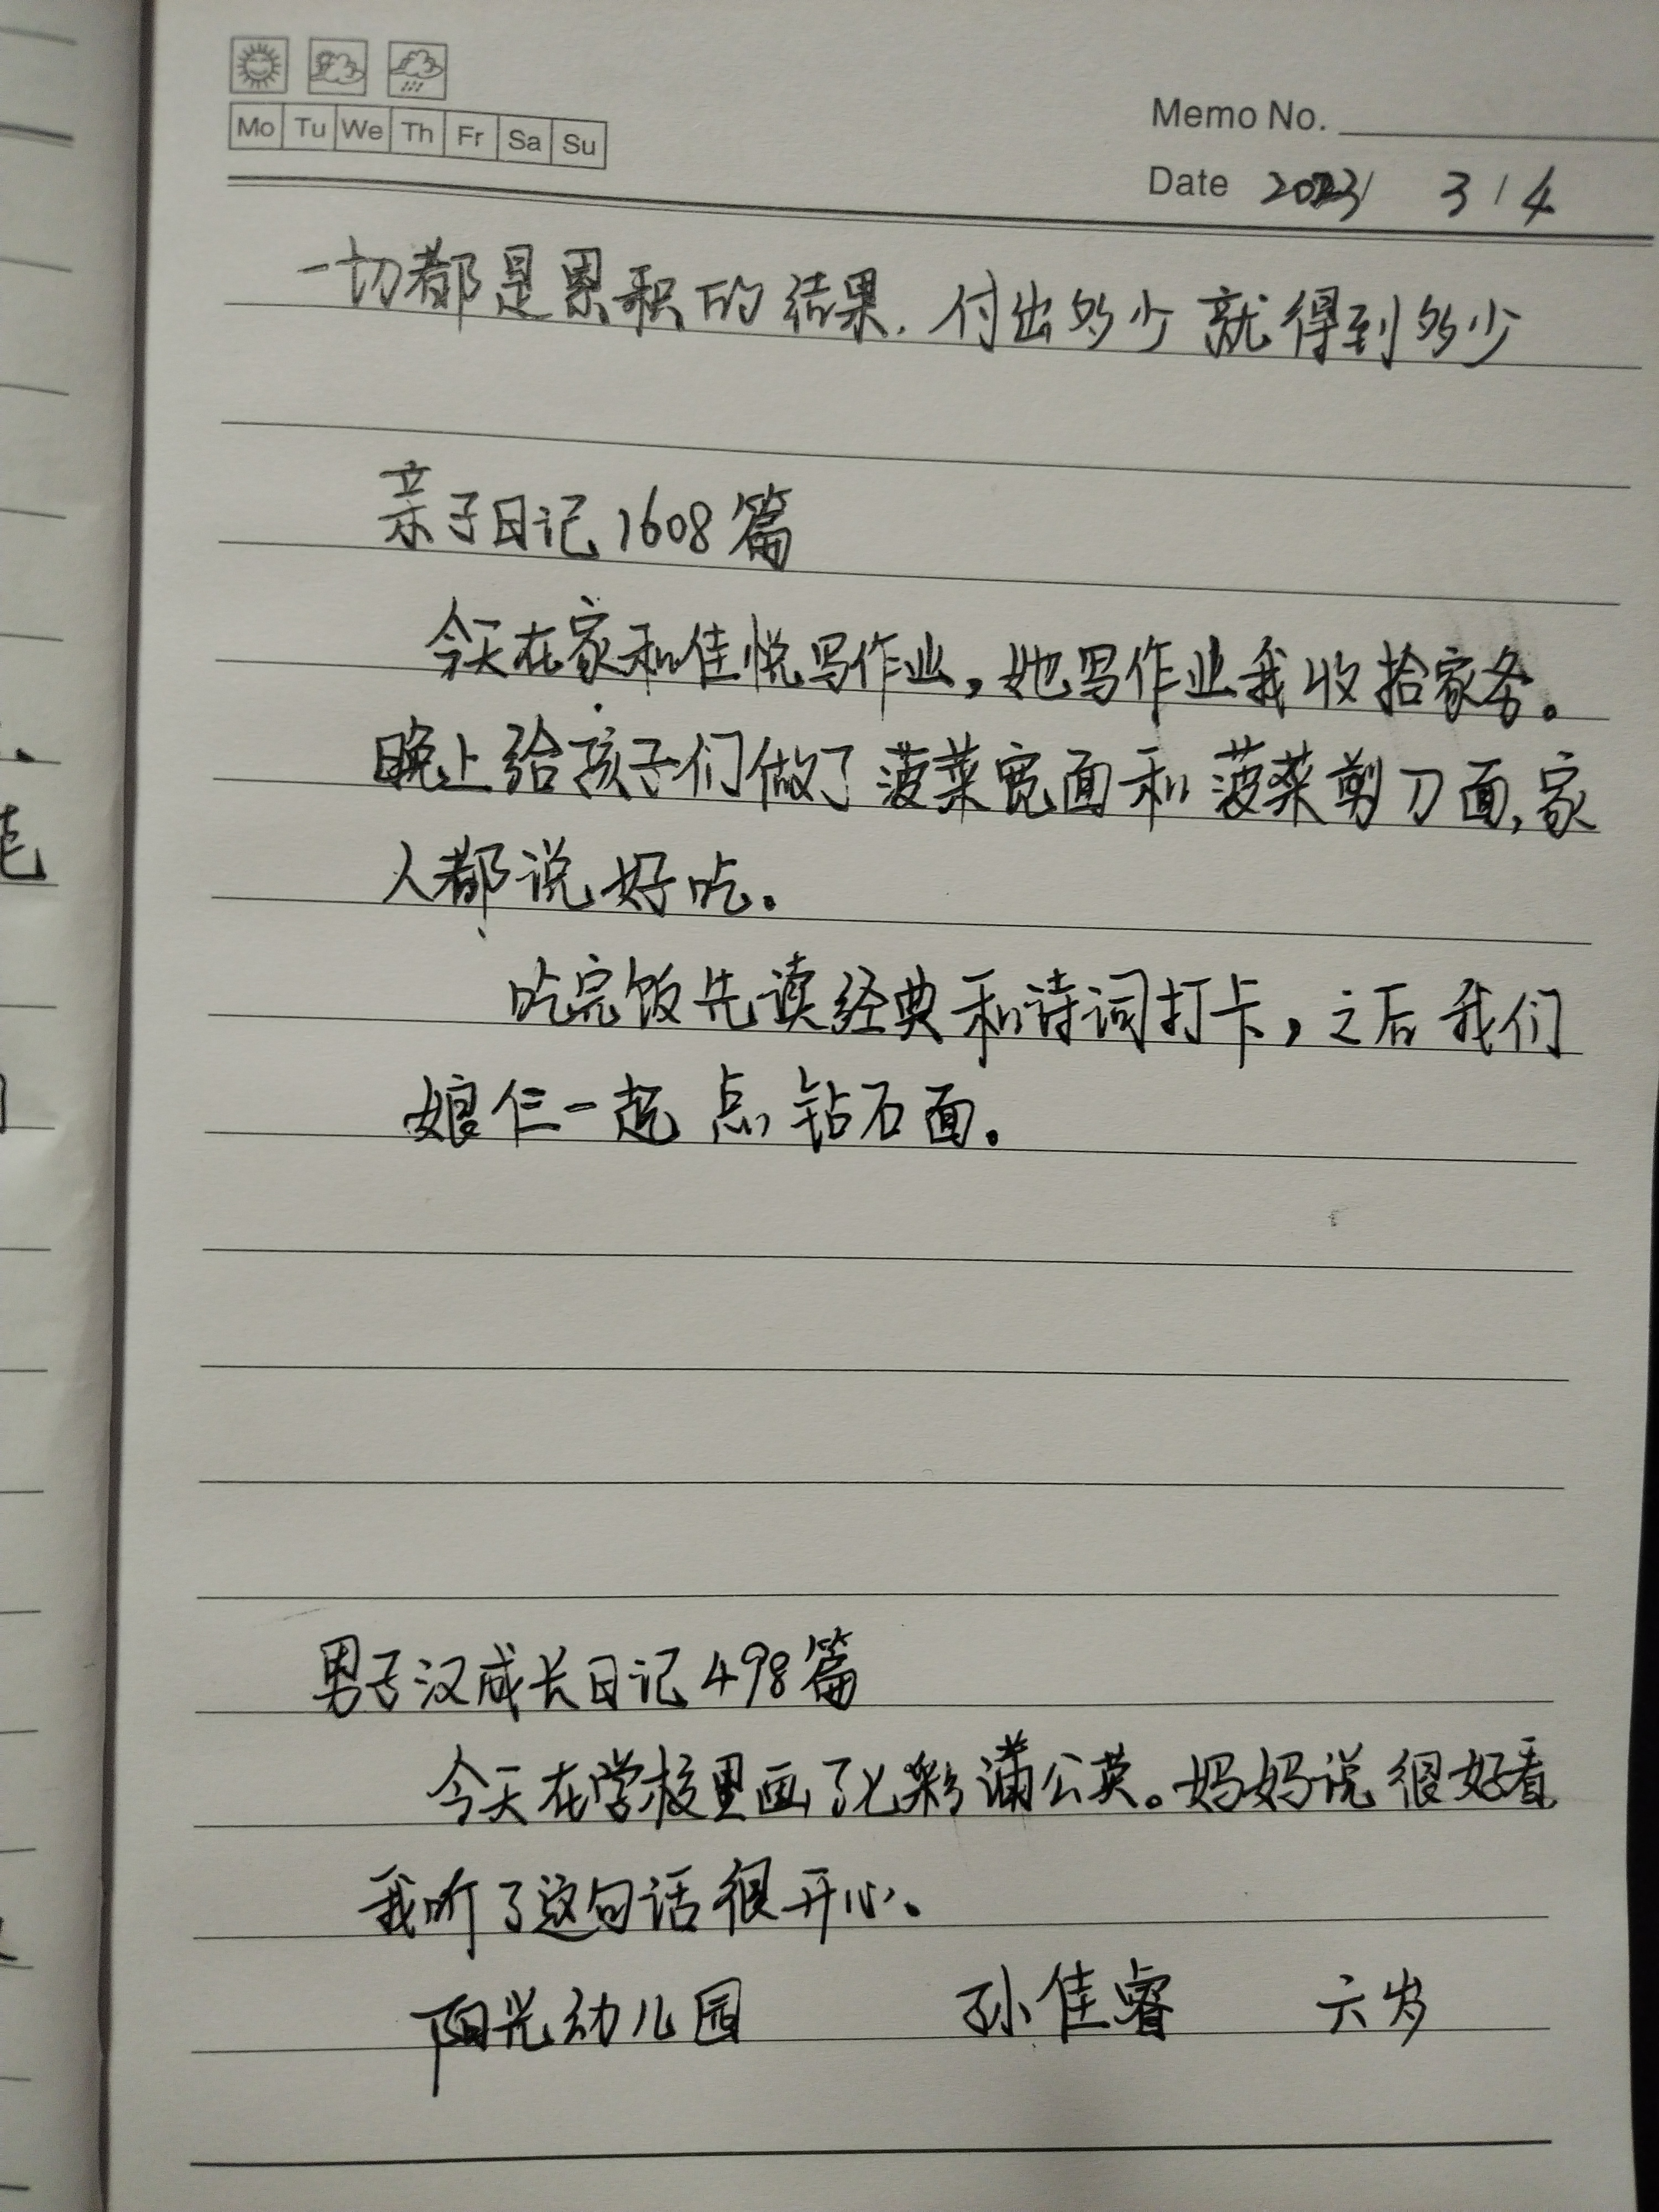 Mo Tu We Th Fr Sa Su
Memo No.
Date 2023/ 3 / 4
一切都是累积的结果.付出多少就得到多少
亲子日记1608篇
今天在家和佳悦写作业,她写作业我收拾家务。
晚上给孩子们做了菠菜宽面和菠菜剪刀面,家
人都说好吃。
吃完饭先读经典和诗词打卡,之后我们
娘仨一起点钻石面。
男子汉成长日记498篇
今天在学校里画了七彩蒲公英。妈妈说很好看,
我听了这句话很开心。
阳光幼儿园 孙佳睿 六岁